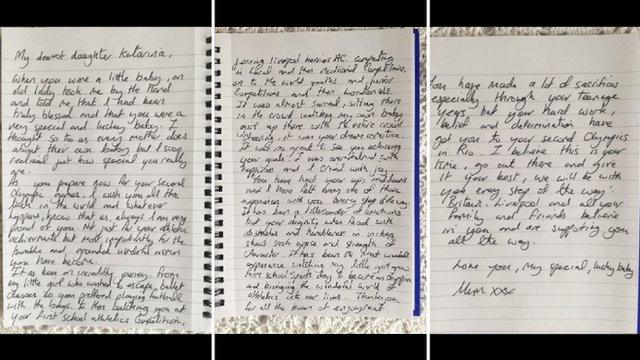 My dearest daughter Katarina,
When you were a little baby, an
old lady took me by the hand
and told me that I had been
truly blessed and that you were a
very special and lucky baby. I
thought so too as every mother does
about their own baby but I soon
realised just how special you really
are.
As you prepare now for your second
Olympic games, I wish you all the
luck in the world and whatever
happens, know that as always I am very
proud of you. Not just for your athletic
achievements but most importantly for the
humble and grounded wonderful woman
you have become.
It has been an incredible journey from
my little girl who wanted to escape ballet
classes so you preferred playing football
with the boys to then watching you at
your first school athletics competition,
joining Liverpool Harriers AC competing
in local and then national competitions,
on to the world youths and juniors
competitions and then London 2012.
It was almost surreal, sitting there
in the crowd watching my own baby
out there with the entire crowd
cheering, it was your dream come true.
It was so great to see you achieving
your goals. I was overwhelmed with
happiness and I cried with joy.
You have had your ups and downs
and I have felt every one of those
experiences with you every step of the way.
It has been a rollercoaster of emotions
but your dignity when faced with
obstacles and humbleness in victory
shows such grace and strength of
character. It has been the most wonderful
experience watching my little girl grow
from school sports day to become an Olympian
and bringing the wonderful world of
athletics into our lives. Thank you
for all the hours of enjoyment
You have made a lot of sacrifices
especially through your teenage
years but your hard work,
belief and determination have
got you to your second Olympics
in Rio. I believe this is your
time, go out there and give
it your best, we will be with
you every step of the way!
Britain, Liverpool and all your
family and friends believe
in you and are supporting you
all the way.
Love you, my special, lucky baby
Mum xxx